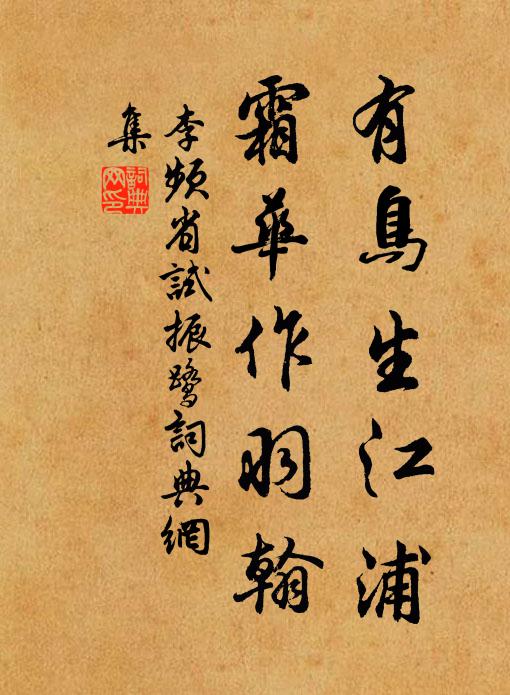 有鳥生江浦
霜華作羽翰
李頻省試振鷺詞典網
集
詞典
網印